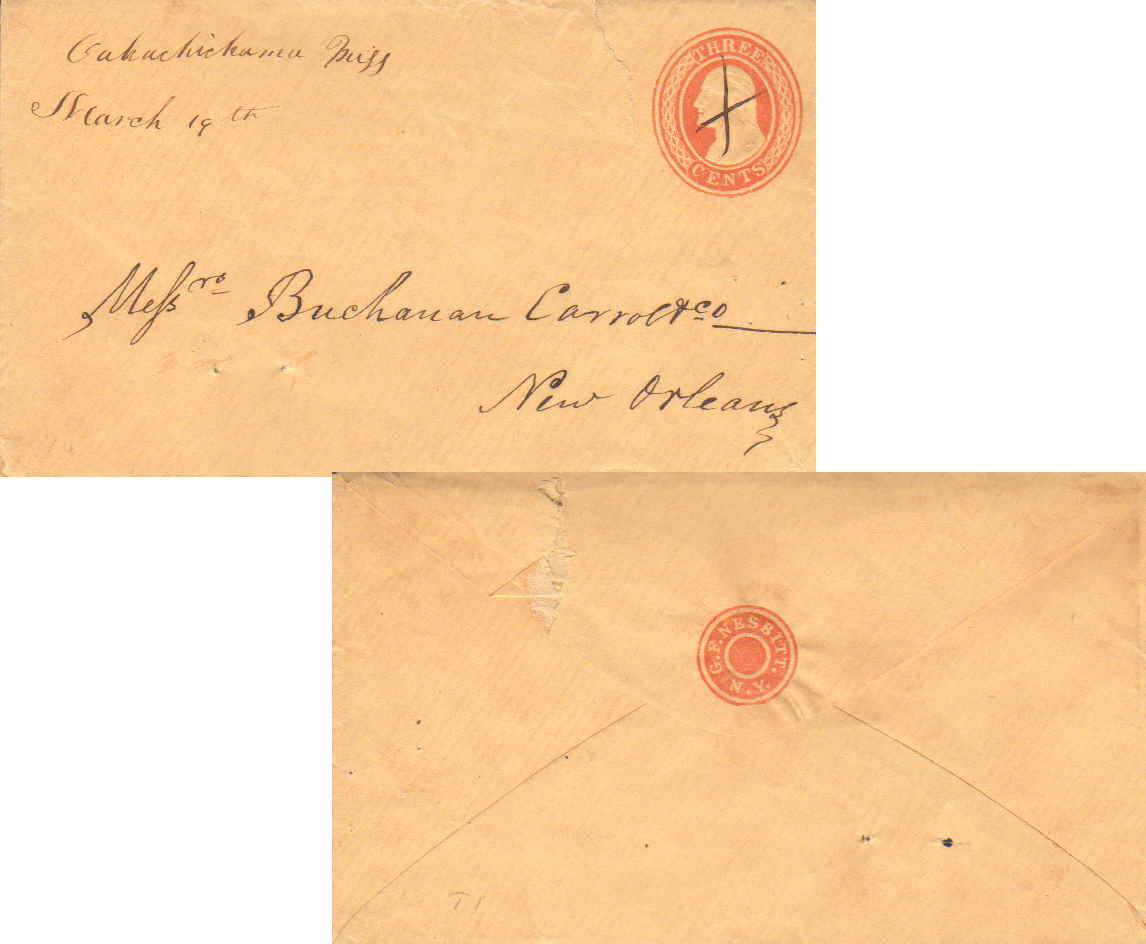 Oakachickama Miss
March 19th
THREE
CENTS
Messrs Buchanan Carroll & co
New Orleans
G. F. NESBITT.
N. Y.
T1